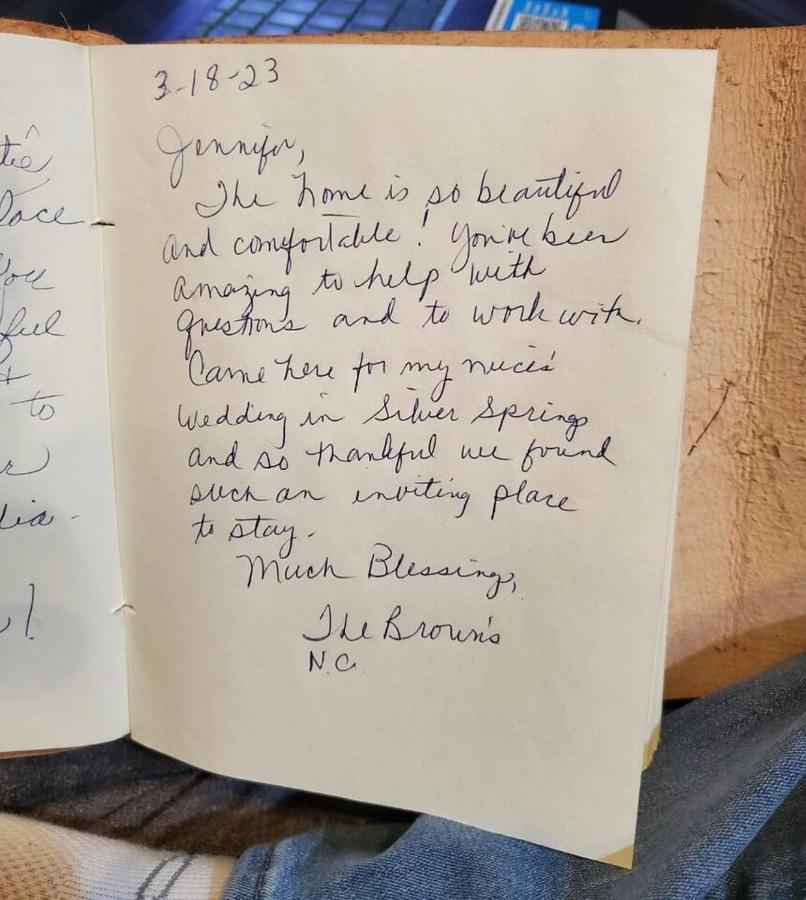 tie
lace
you
ful
to
dia-
!
3-18-23
Jennifer,
The home is so beautiful
and comfortable! You've been
amazing to help with
questions and to work with.
Came here for my niece's
wedding in Silver Springs
and so thankful we found
such an inviting place
to stay.
Much Blessings,
The Brown's
N.C.